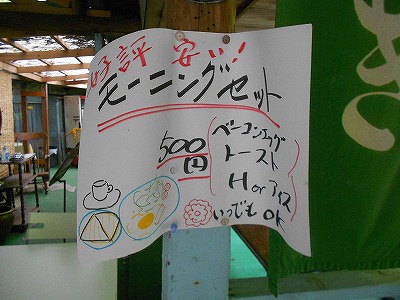 好評 安い!!
モーニングセット
500円
ベーコンエッグ
トースト
H or アイス
いつでも OK